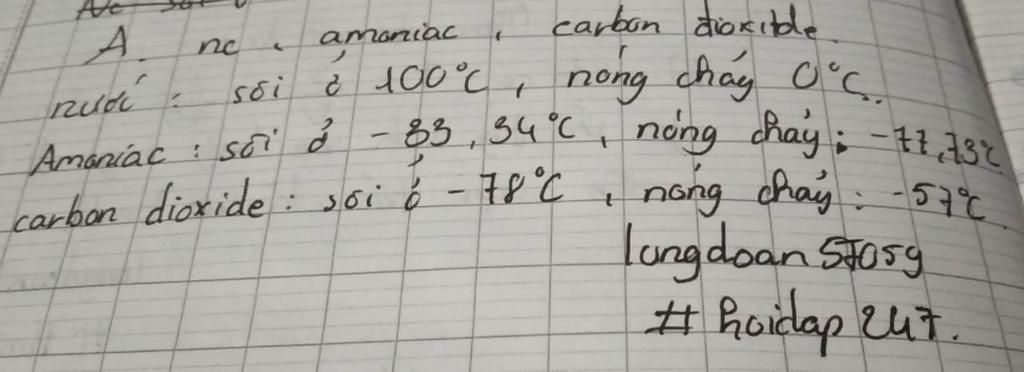 A. nc, amoniac, carbon dioxide.
nước: sôi ở 100°C, nóng chảy 0°C.
Amoniac: sôi ở -33,34°C, nóng chảy: -77,73°C
carbon dioxide: sôi ở -78°C, nóng chảy: -57°C
longdoan57059
# hoidap247.